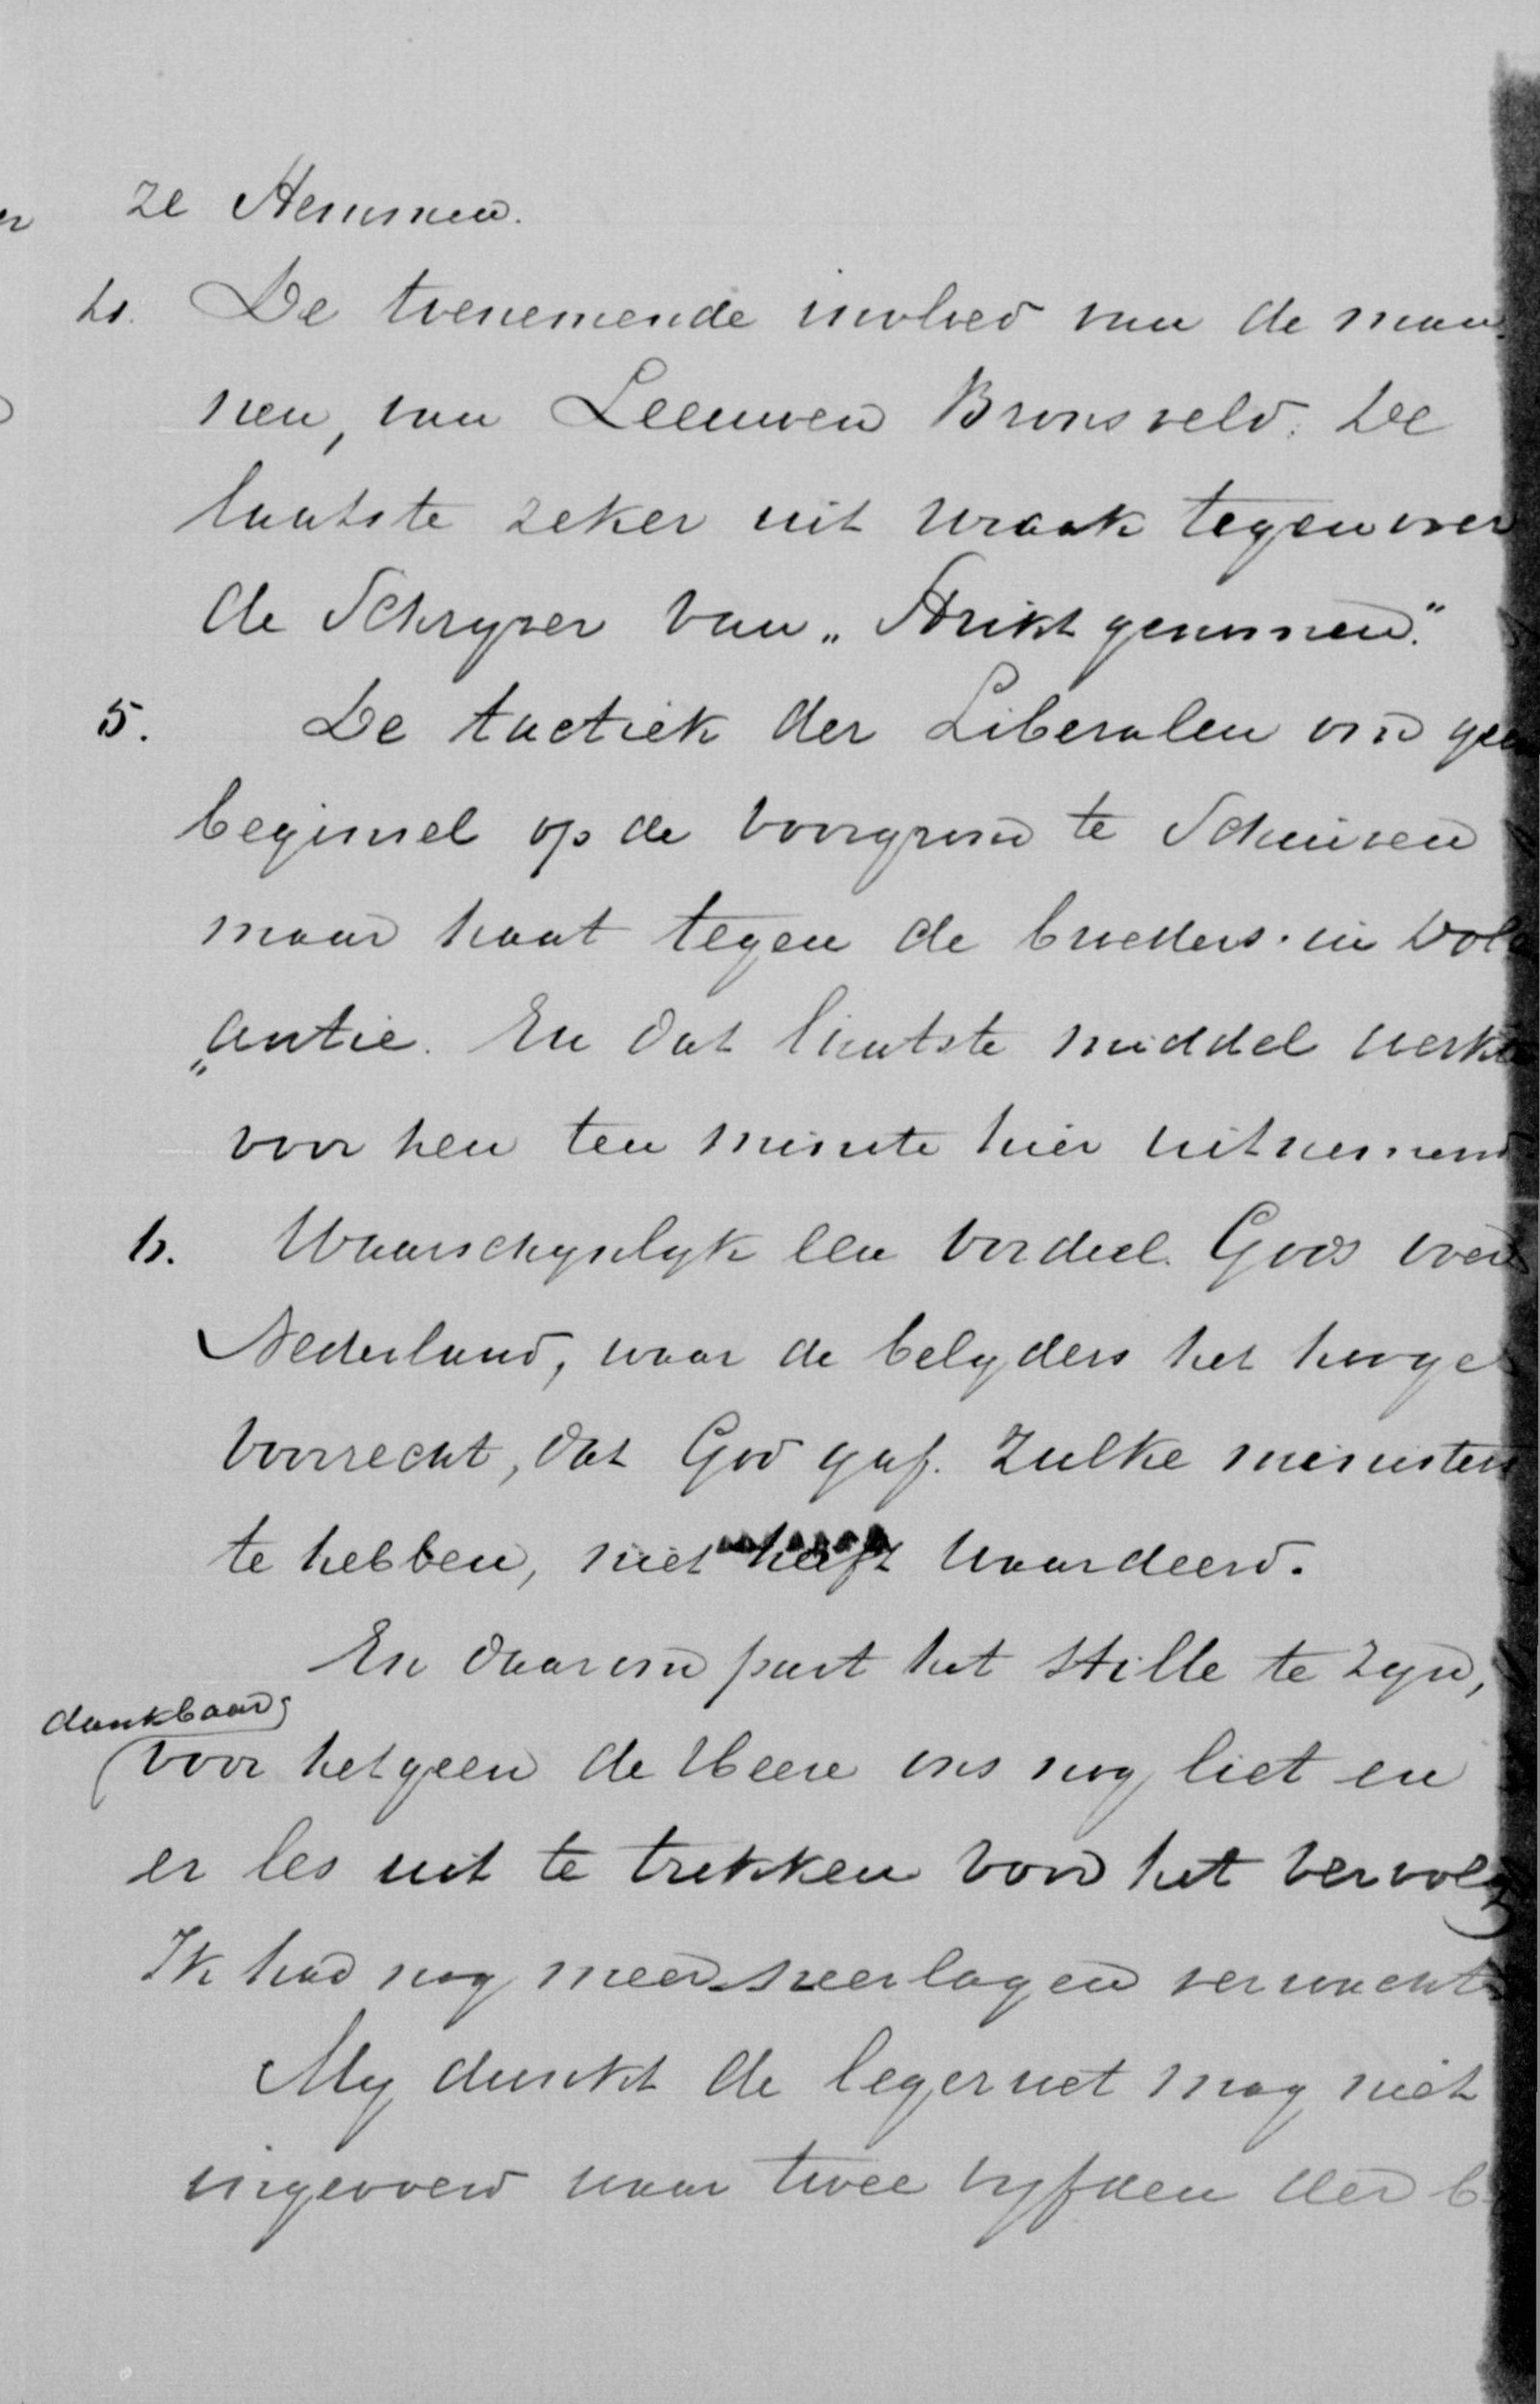 ze stemmen.
4. De toenemende invloed van de man
nen, van Leeuwen Bronsveld. De
laatste zeker uit wraak tegenover
de Schryver van „Strikt genomen."
5. De tactiek der Liberalen om geen
beginsel op de voorgrond te Schuiven
maar haat tegen de broeders. in
„antie. En dat laatste middel werkt
voor hen ten minste hier uitnemend
6. Waarschynlyk een oordeel Gods over
Nederland, waar de belyders het hooge
voorrecht, dat God gaf. Zulke ministers
te hebben, niet heeft waardeerd.
En daarom past het stille te zyn,
dankbaar
voor hetgeen de Heere ons nog liet en
er les uit te trekken voor het vervolg
Ik had nog meer neerlagen verwacht
My dunkt de legerwet mag niet
ingevoerd waar twee vyfden der